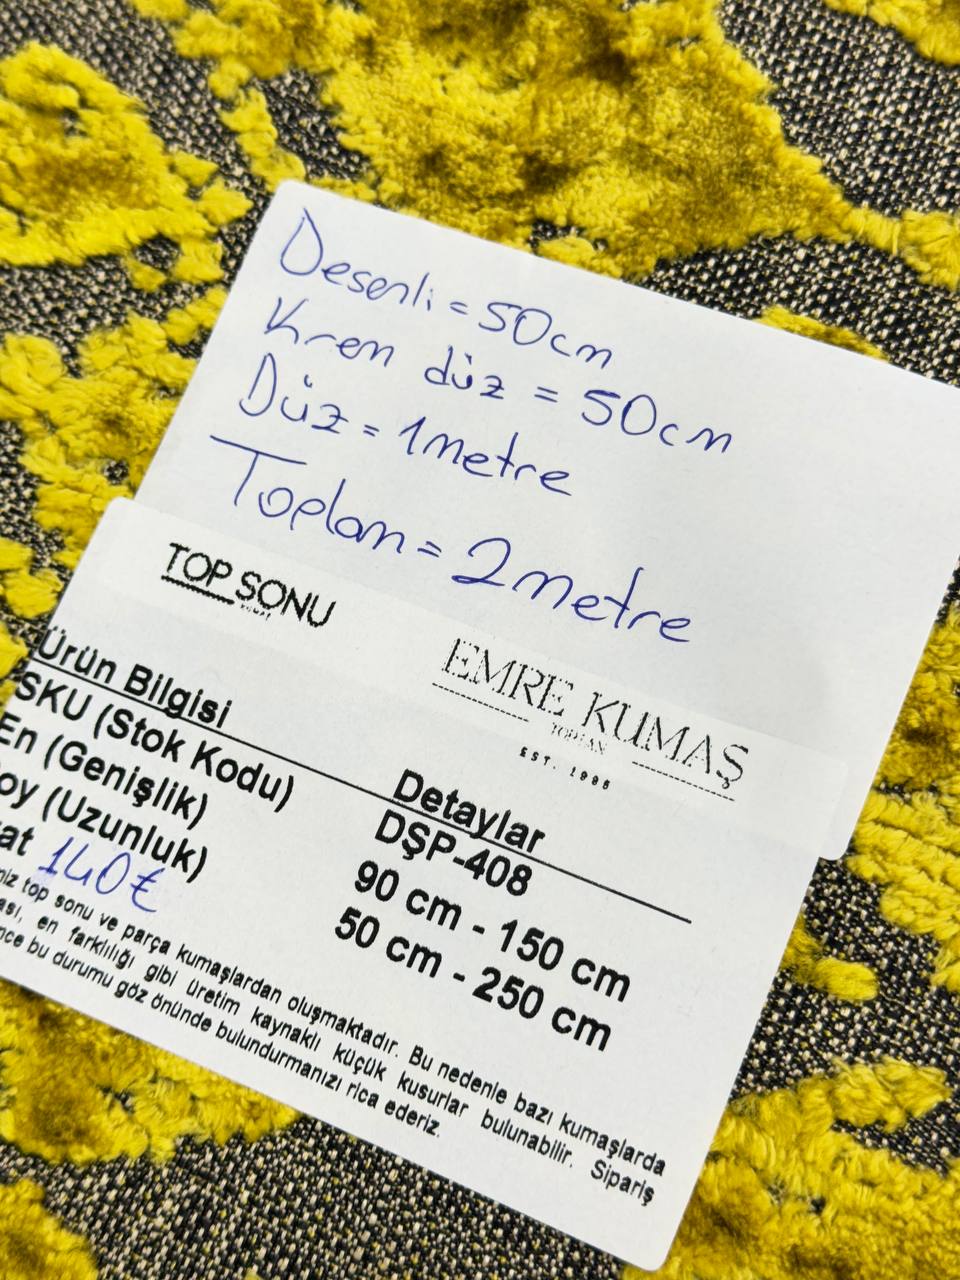 Desenli = 50cm
Krem düz = 50cm
Düz = 1metre
Toplam = 2metre
TOP SONU
KUMAŞ
EMRE KUMAŞ
TOPTAN
EST. 1996
Ürün Bilgisi Detaylar
SKU (Stok Kodu) DŞP-408
En (Genişlik) 90 cm - 150 cm
oy (Uzunluk) 50 cm - 250 cm
at 140₺
miz top sonu ve parça kumaşlardan oluşmaktadır. Bu nedenle bazı kumaşlarda
ası, en farklılığı gibi üretim kaynaklı küçük kusurlar bulunabilir. Sipariş
nce bu durumu göz önünde bulundurmanızı rica ederiz.